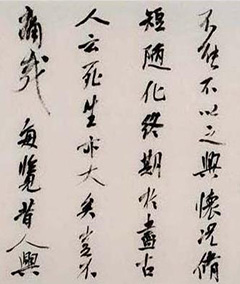 不能不以之興懷況脩
短隨化終期於盡古
人云死生亦大矣豈不
痛哉每覽昔人興